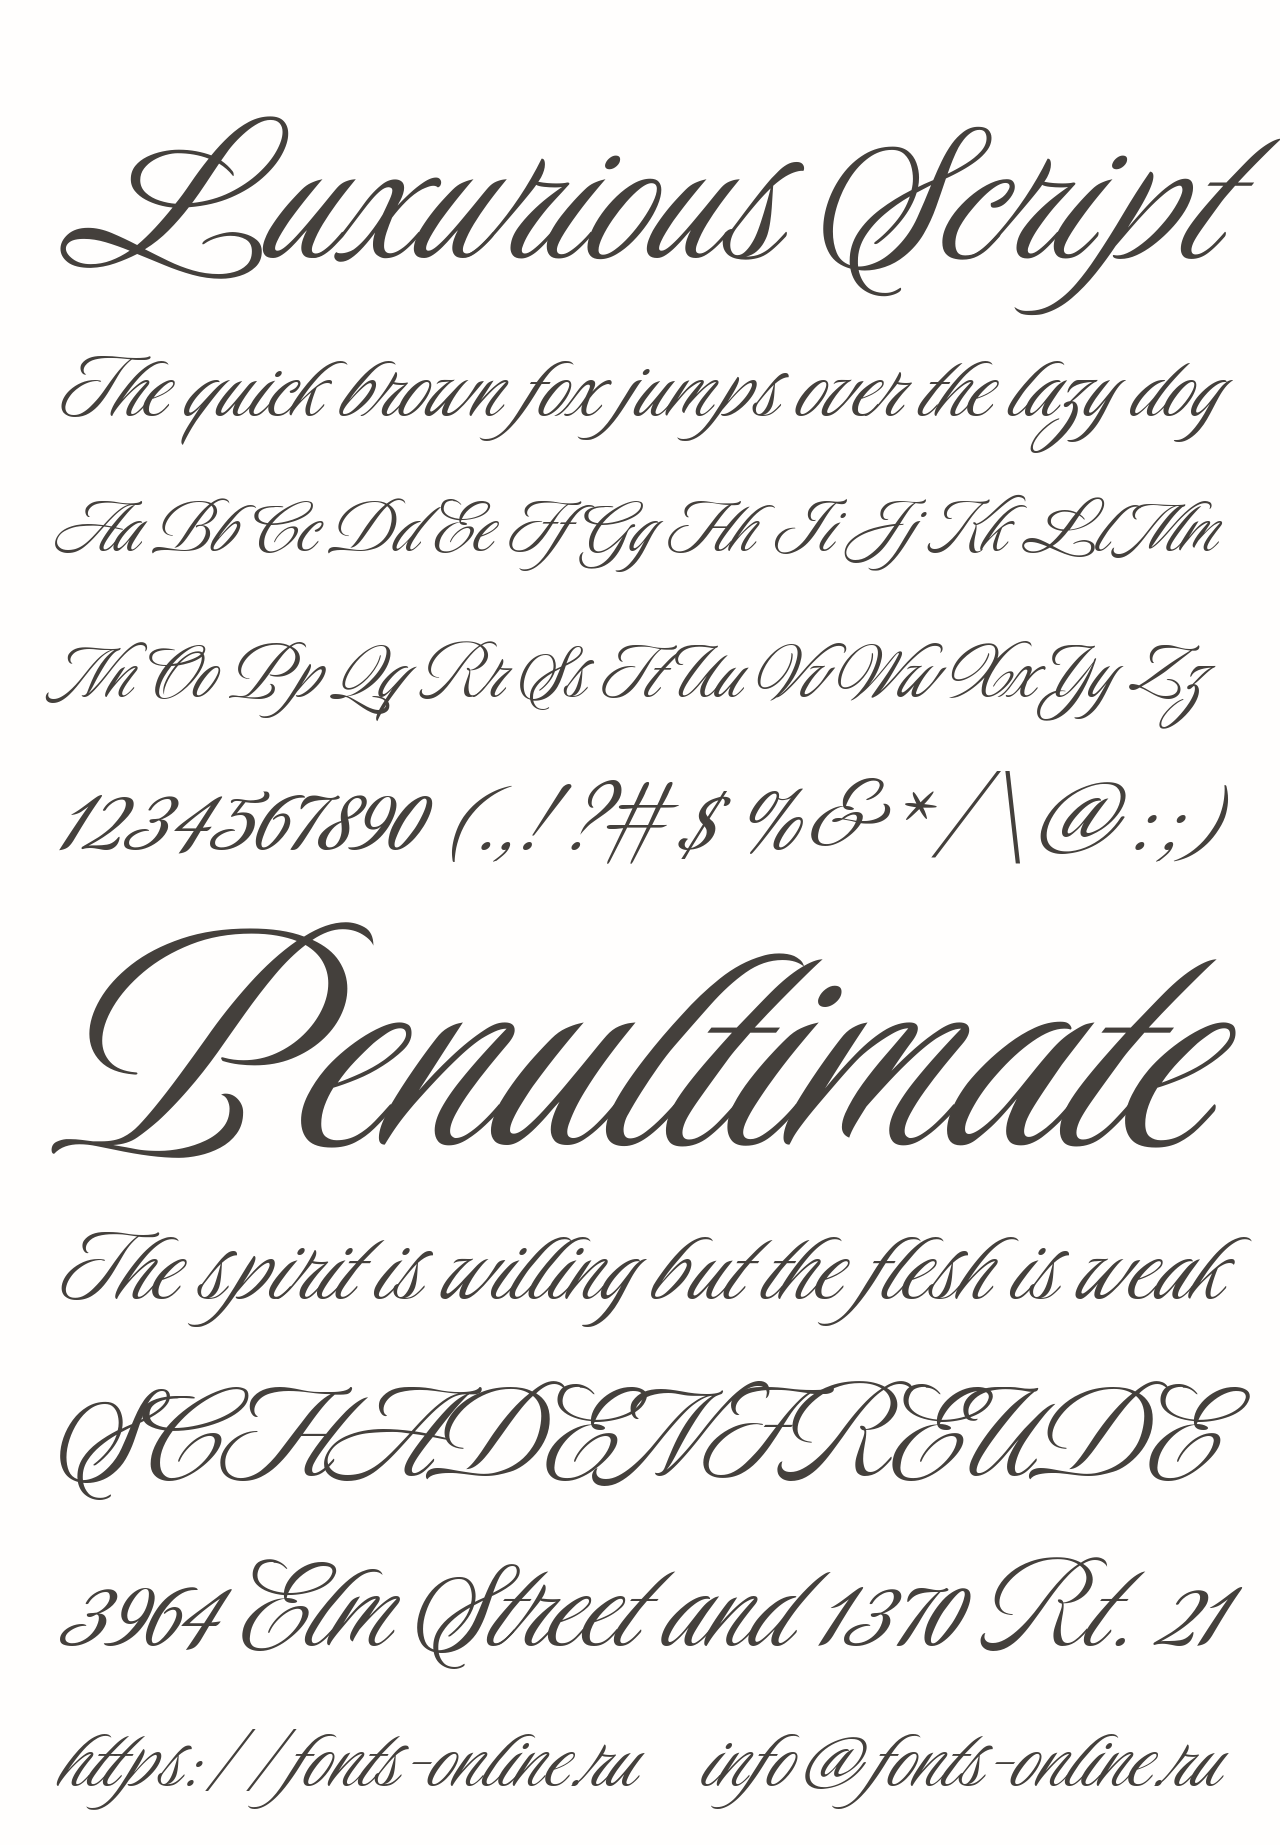 Luxurious Script
The quick brown fox jumps over the lazy dog
Aa Bb Cc Dd Ee Ff Gg Hh Ii Jj Kk Ll Mm
Nn Oo Pp Qq Rr Ss Tt Uu Vv Ww Xx Yy Zz
1234567890 (.,!?#$%&*/\@:;)
Penultimate
The spirit is willing but the flesh is weak
SCHADENFREUDE
3964 Elm Street and 1370 Rt. 21
https://fonts-online.ru info@fonts-online.ru